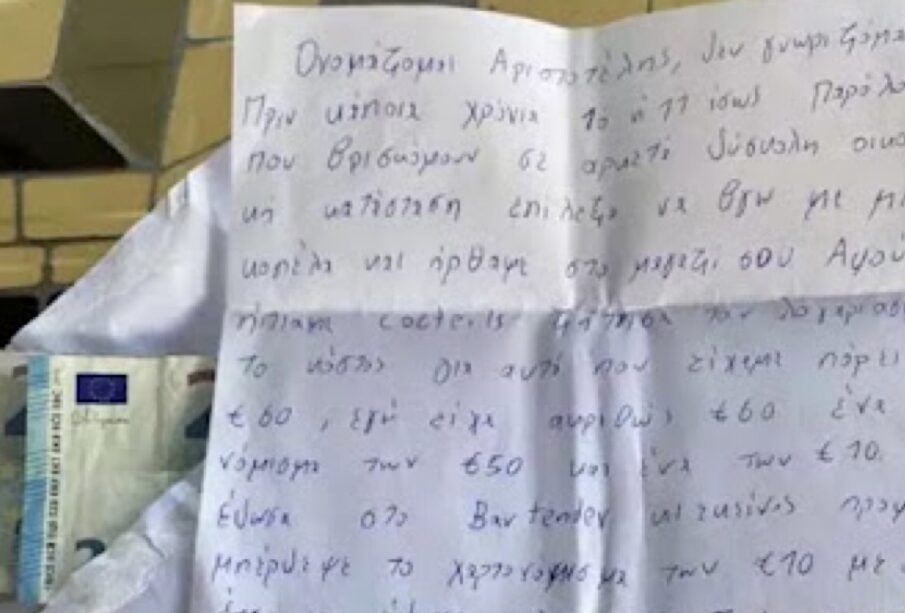 Ονομάζομαι Αριστοτέλης, δεν γνωριζόμα
Πριν κάποια χρόνια 10 ή 11 ίσως Παρόλο
που βρισκόμουν σε αρκετά δύσκολη οικο
κή κατάσταση επιλεξα να βγω με μι
κοπέλα και ήρθαμε στο μαγαζί σου Αφού
ήπιαμε cocteils ζήτησα τον λογαριασ
Το κόστος για αυτά που είχαμε πάρει
€60, εγώ είχα ακριβώς €60 ένα
νόμισμα των €50 και ένα των €10.
Έδωσα στο Bartender και εκείνος προφ
μπέρδεψε το χαρτονόμισμα των €10 με